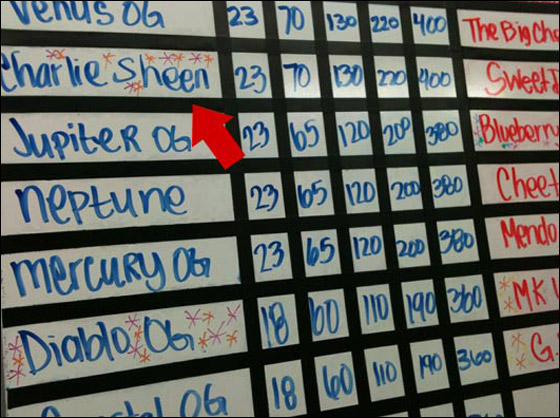 Venus OG 23 70 130 220 400 The Big Che
Charlie Sheen 23 70 130 220 400 Sweet
Jupiter OG 23 65 120 200 380 Blueberry
Neptune 23 65 120 200 380 Cheet
Mercury OG 23 65 120 200 380 Mendo
Diablo OG 18 60 110 190 360 MK
OG 18 60 110 190 360 G